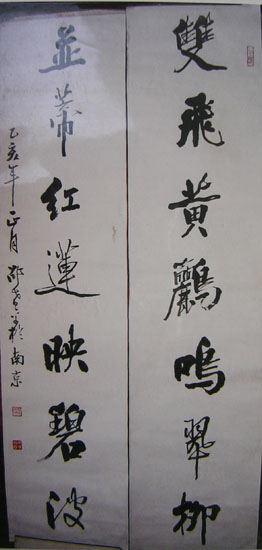 雙飛黃鸝鳴翠柳
並蒂红蓮映碧波
乙亥年正月
於南京